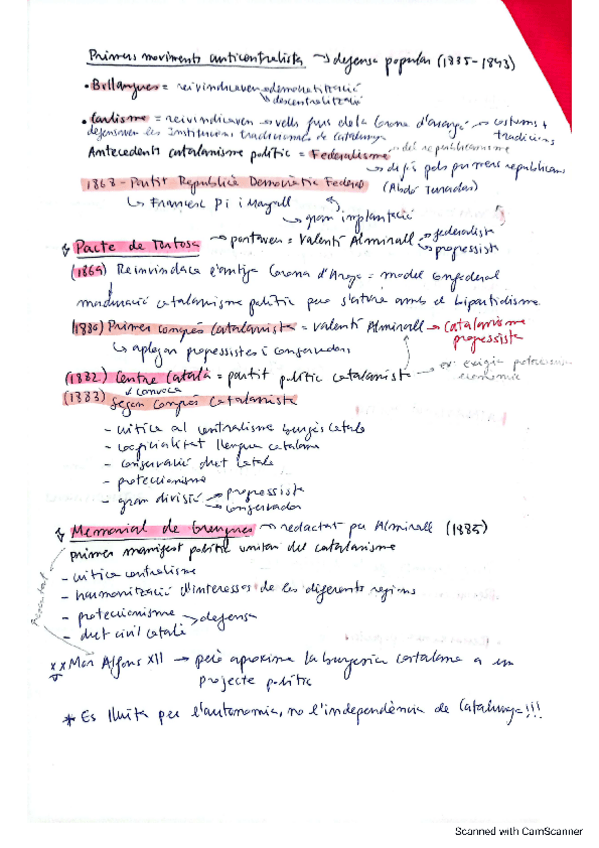 Primers moviments anticentralista → defensa popular (1835-1843)
• Bullangues = reivindicaven → democratització
→ descentralització
• Carlisme = reivindicaven → vells furs de la Corona d'Aragó → costums +
tradicions
defensaven les institucions tradicionals de Catalunya
→ del republicanisme
Antecedents catalanisme polític = Federalisme
→ defès pels primers republicans
1868 - Partit Republicà Democràtic Federal (Abdó Terradas)
↳ Francesc Pi i Margall
→ gran implantació
Pacte de Tortosa → portaveu = Valentí Almirall → federalista
→ progressista
(1869) Reinvindica l'antiga Corona d'Aragó = model confederal
maduració catalanisme polític però s'atura amb el bipartidisme
(1880) Primer congrés Catalanista = Valentí Almirall → Catalanisme
progressista
↳ aplegar progressistes i conservadors
(1882) Centre Català = partit polític catalanista → exigia proteccionisme
econòmic
↓ convoca
(1883) Segon Congrés Catalanista
- crítica al centralisme burgès català
- cooficialitat llengua catalana
- conservació dret català
- proteccionisme
- gran divisió → progressista
→ conservador
Memorial de Greuges → redactat per Almirall (1885)
primer manifest polític unitari del catalanisme
- crítica centralisme
- harmonització d'interessos de les diferents regions
- proteccionisme → defensa
- dret civil català
Presentat
xx Mor Alfons XII → però aproxima la burgesia catalana a un
projecte polític
* Es lluita per l'autonomia, no l'independència de Catalunya!!!
Scanned with CamScanner